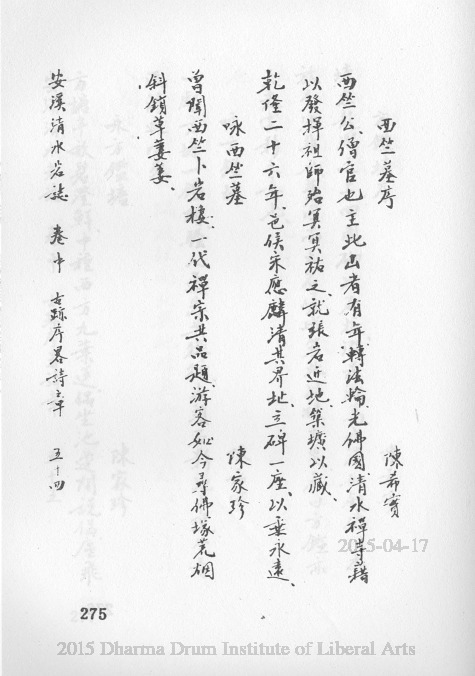 西竺墓序
陳希實
西竺公、僧官也、主此山者有年、轉法輪、光佛國、清水禪寺、藉
以發揮、祖師殆冥冥祐之、就張岩近地、築壙以藏、
乾隆二十六年、邑侯宋應麟清其界址、立碑一座、以垂永遠、
咏西竺墓
陳家珍
曾聞西竺卜岩棲、一代禪宗共品題、游客如今尋佛塚、荒烟
斜鎖草萋萋、
安溪清水岩誌 卷中 古跡序畧詩章 五十四
275
2015-04-17
2015 Dharma Drum Institute of Liberal Arts